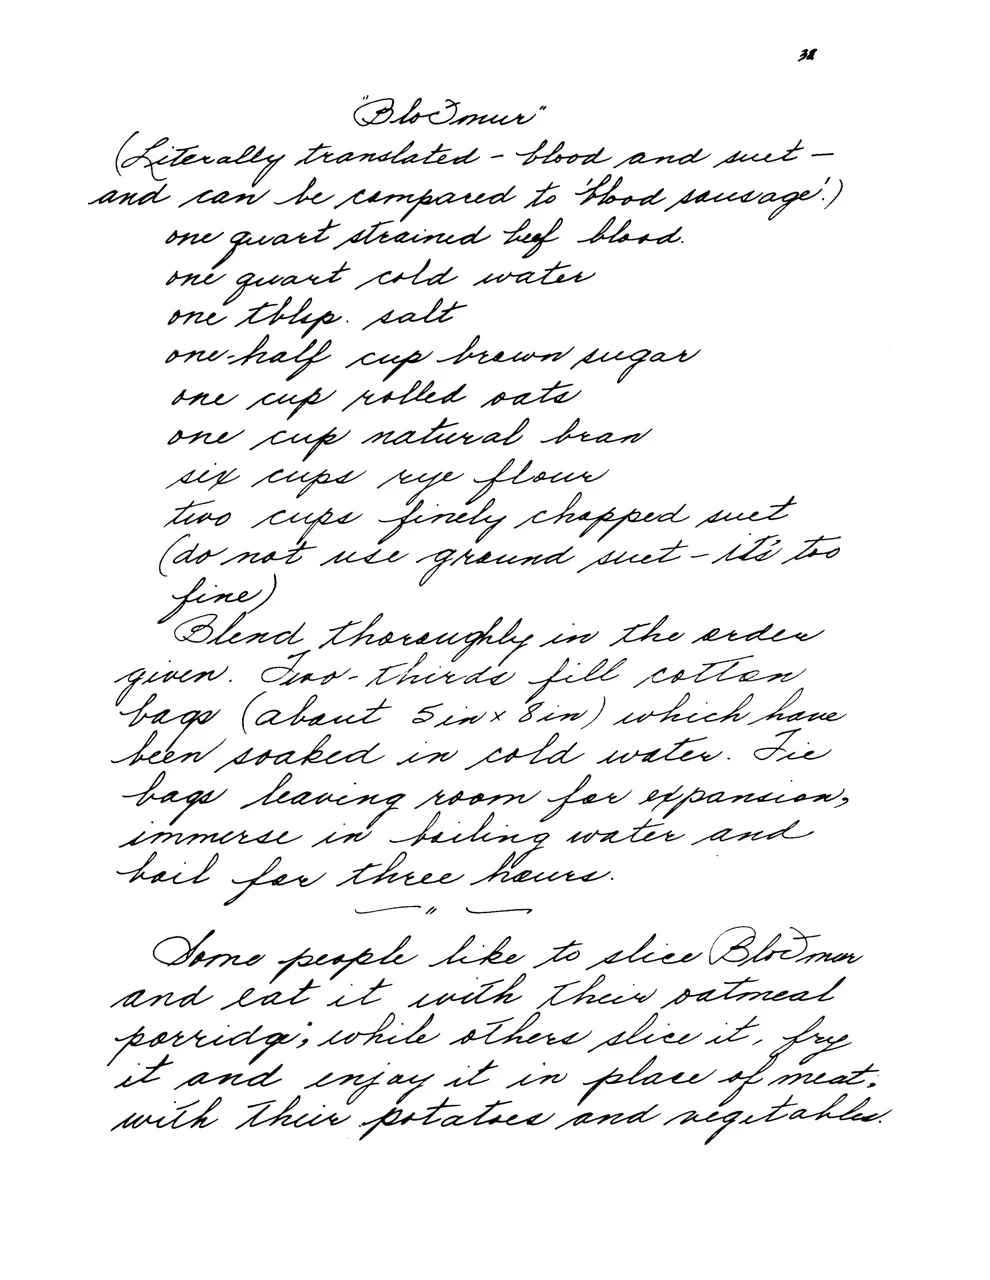 38
"Bloðmur"
(Literally translated - blood and suet -
and can be compared to 'blood sausage'.)
one quart strained beef blood.
one quart cold water
one tblsp. salt
one-half cup brown sugar
one cup rolled oats
one cup natural bran
six cups rye flour
two cups finely chopped suet
(do not use ground suet - it's too
fine)
Blend thoroughly in the order
given. Two-thirds fill cotton
bags (about 5 in x 8 in) which have
been soaked in cold water. Tie
bags leaving room for expansion,
immerse in boiling water and
boil for three hours.
— " —
Some people like to slice Bloðmur
and eat it with their oatmeal
porridge; while others slice it, fry
it and enjoy it in place of meat;
with their potatoes and vegetables.